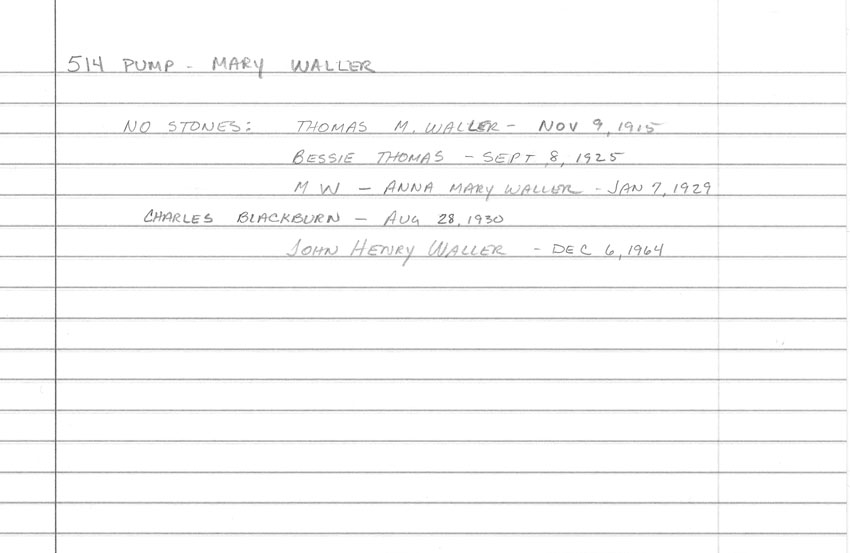 514 PUMP - MARY WALLER
NO STONES: THOMAS M. WALLER - NOV 9, 1915
BESSIE THOMAS - SEPT 8, 1925
M W - ANNA MARY WALLER - JAN 7, 1929
CHARLES BLACKBURN - AUG 28, 1930
JOHN HENRY WALLER - DEC 6, 1964